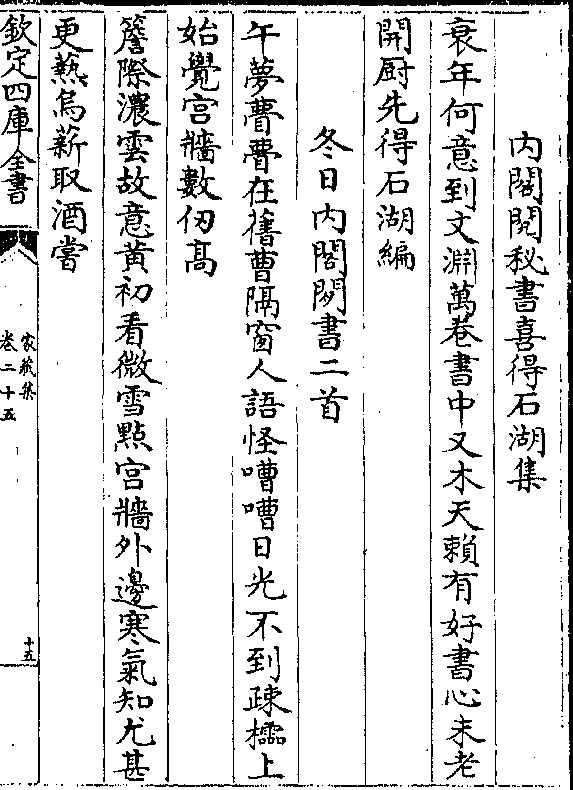 内閣閱秘書喜得石湖集
衰年何意到文淵萬卷書中又木天賴有好書心未老
開厨先得石湖編
冬日内閣閲書二首
午夢瞢瞢在舊曹隔窗人語怪嘈嘈日光不到疎櫺上
始覺宫牆數仞髙
簷際濃雲故意黄初看微雪點宫牆外邊寒氣知尤甚
更爇烏薪取酒嘗
欽定四庫全書
家藏集
卷二十五
十五